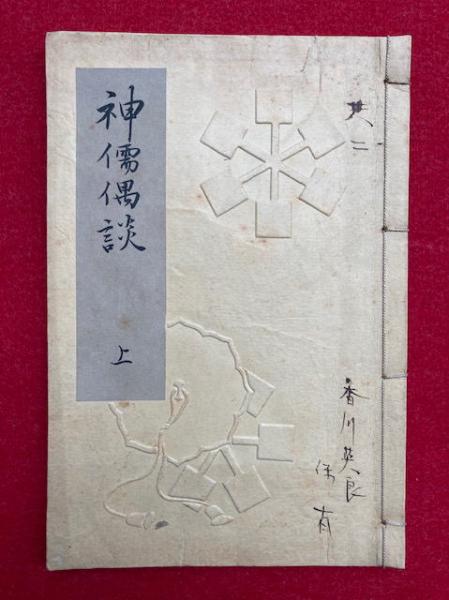 共二
神儒偶談
上
香川英良
保有